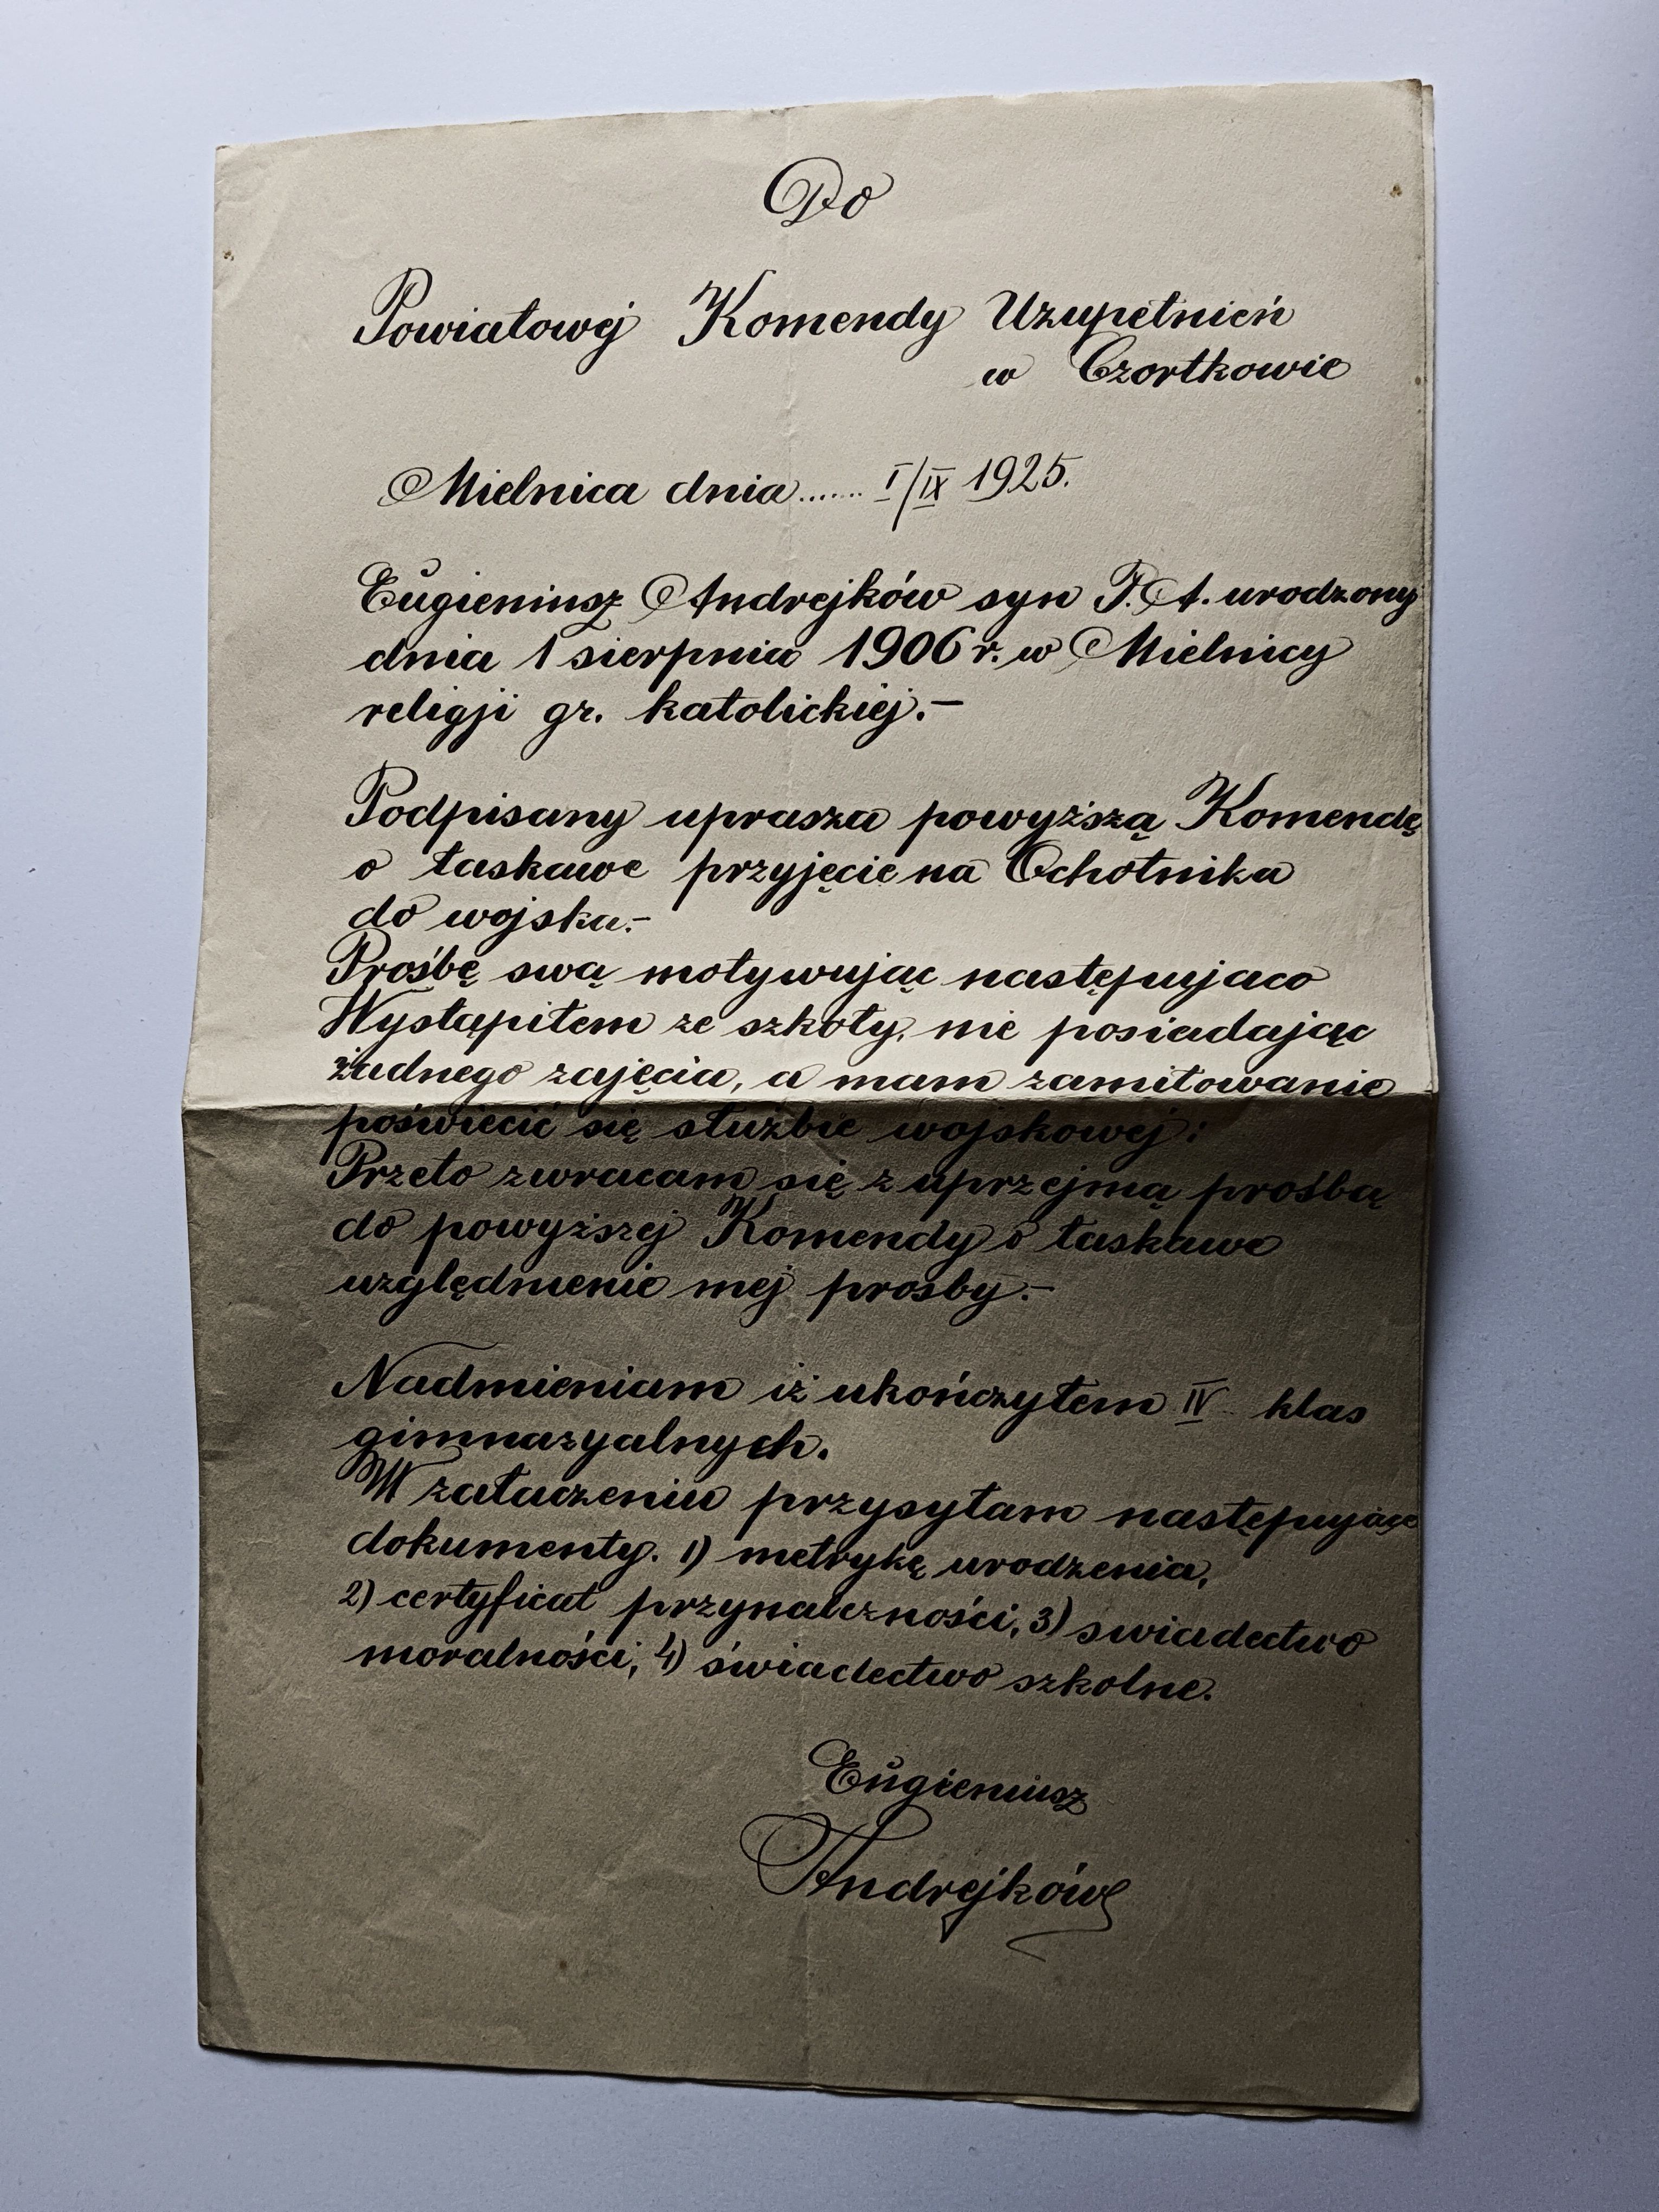 Do
Powiatowej Komendy Uzupełnień
w Czortkowie
Mielnica dnia...... I/IX 1925.
Eugieniusz Andrejków syn P. A. urodzony
dnia 1 sierpnia 1906 r. w Mielnicy
religji gr. katolickiej.-
Podpisany uprasza powyższą Komendę
o łaskawe przyjęcie na Ochotnika
do wojska.-
Prośbę swą motywując następujaco
Wystąpiłem ze szkoły, nie posiadając
żadnego zajęcia, a mam zamiłowanie
poświecić się służbie wojskowej:
Przeto zwracam się z uprzejmą prośbą
do powyższej Komendy o łaskawe
uzględnienie mej prosby.-
Nadmieniam iż ukończyłem IV klas
gimnazyalnych.
W załaczeniu przysyłam następujące
dokumenty. 1) metrykę urodzenia,
2) certyficat przynależności, 3) swiadectwo
moralności, 4) świadectwo szkolne.
Eugieniusz
Andrejków